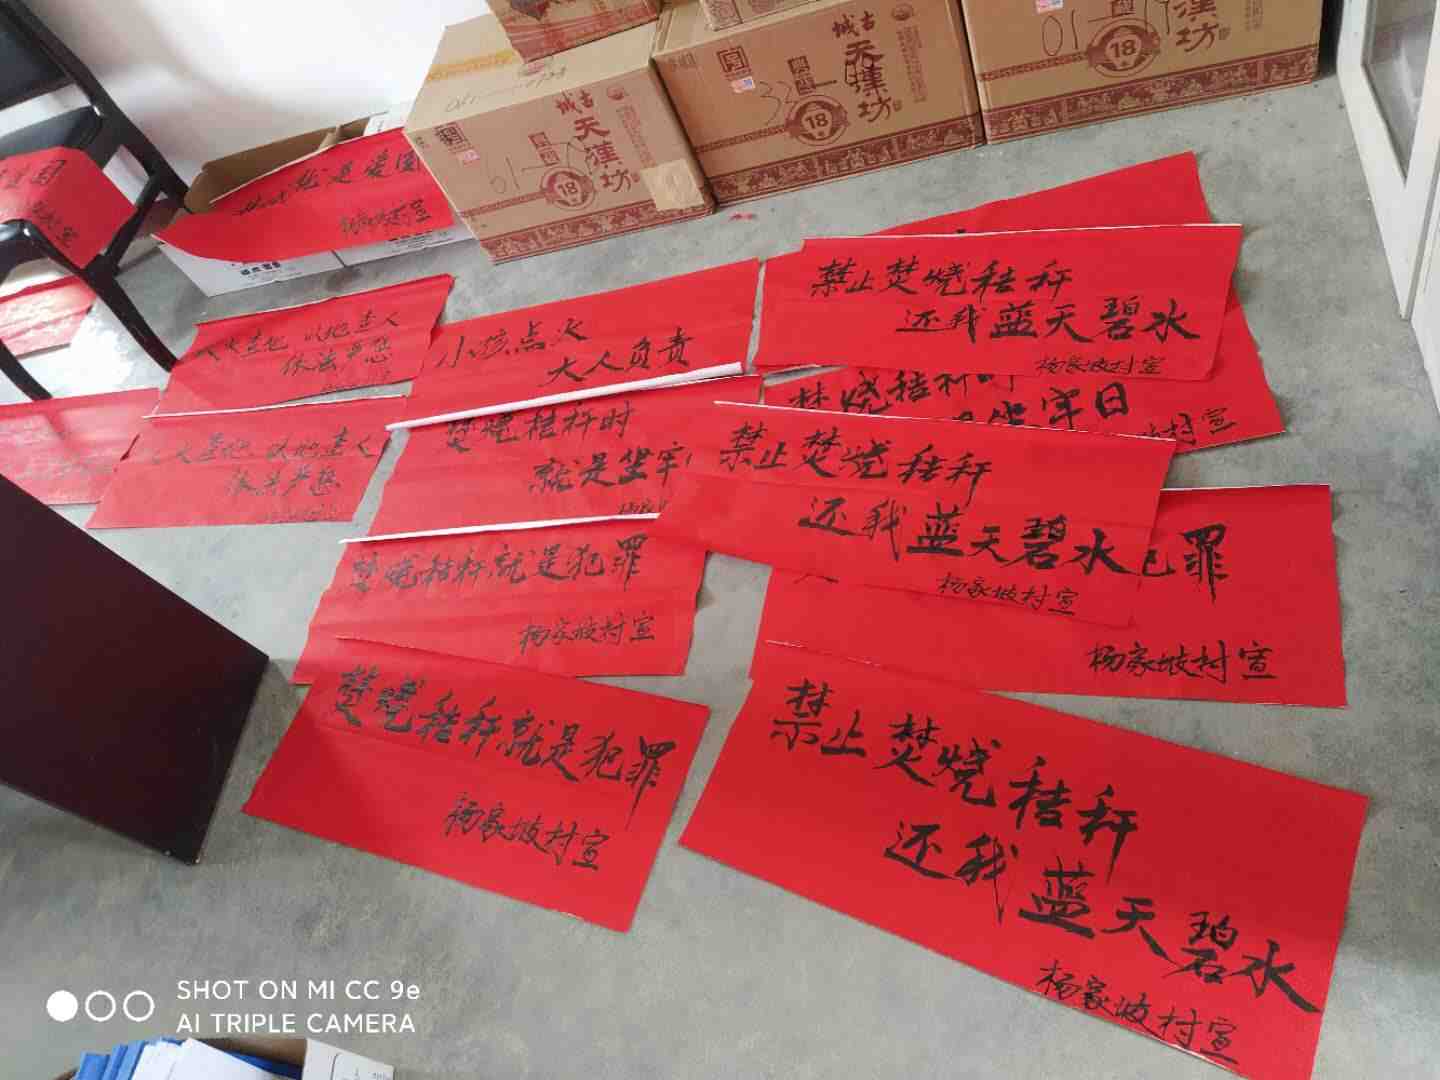 古城
天漢坊
18
古城
天漢坊
18
33
01
天漢坊
18
01
就是爱国
杨家坡村宣
以地查人
依法严惩
小孩点火
大人负责
禁止焚烧秸秆
还我蓝天碧水
杨家坡村宣
焚烧秸秆时
就是坐牢
焚烧秸秆时
坐牢日
村宣
以地查人
依法严惩
禁止焚烧秸秆
还我蓝天碧水
杨家坡村宣
焚烧秸秆就是犯罪
杨家坡村宣
犯罪
杨家坡村宣
焚烧秸秆就是犯罪
杨家坡村宣
禁止焚烧秸秆
还我蓝天碧水
杨家坡村宣
SHOT ON MI CC 9e
AI TRIPLE CAMERA